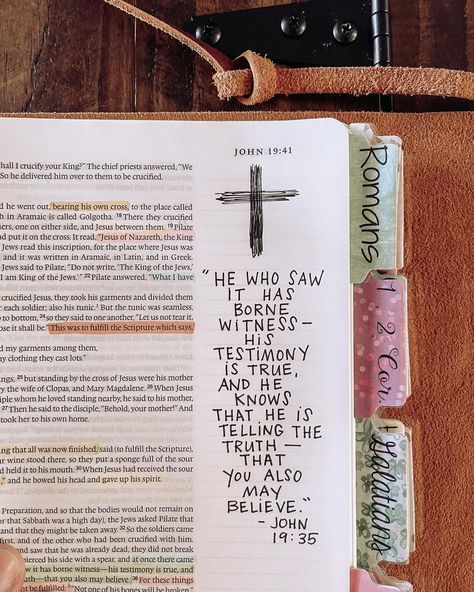 JOHN 19:41
hall I crucify your King?" The chief priests answered, "We
So he delivered him over to them to be crucified.
he went out, bearing his own cross, to the place called
h in Aramaic is called Golgotha. 18 There they crucified
ers, one on either side, and Jesus between them. 19 Pilate
and put it on the cross. It read, "Jesus of Nazareth, the King
Jews read this inscription, for the place where Jesus
and it was written in Aramaic, in Latin, and in Greek.
Jews said to Pilate, "Do not write, 'The King of the Jews,'
I am King of the Jews.'" 22 Pilate answered, "What I have
crucified Jesus, they took his garments and divided them
each soldier; also his tunic. But the tunic was seamless,
to bottom, 24 so they said to one another, "Let us not tear it,
ose it shall be." This was to fulfill the Scripture which says,
d my garments among them,
y clothing they cast lots."
ngs, 25 but standing by the cross of Jesus were his mother
the wife of Clopas, and Mary Magdalene. 26 When Jesus
ple whom he loved standing nearby, he said to his mother,
27 Then he said to the disciple, "Behold, your mother!" And
ook her to his own home.
ing that all was now finished, said (to fulfill the Scripture),
wine stood there, so they put a sponge full of the sour
d held it to his mouth. 30 When Jesus had received the sour
," and he bowed his head and gave up his spirit.
Preparation, and so that the bodies would not remain on
or that Sabbath was a high day), the Jews asked Pilate that
and that they might be taken away. 32 So the soldiers came
first, and of the other who had been crucified with him.
and saw that he was already dead, they did not break
pierced his side with a spear, and at once there came
w it has borne witness—his testimony is true, and
uth—that you also may believe. 36 For these things
be fulfilled: "Not one of his bones will be broken."
"HE WHO SAW
IT HAS
BORNE
WITNESS—
HIS
TESTIMONY
IS TRUE,
AND HE
KNOWS
THAT HE IS
TELLING THE
TRUTH —
THAT
YOU ALSO
MAY
BELIEVE."
- JOHN
19:35
Romans
1 + 2 Cor
Galatians